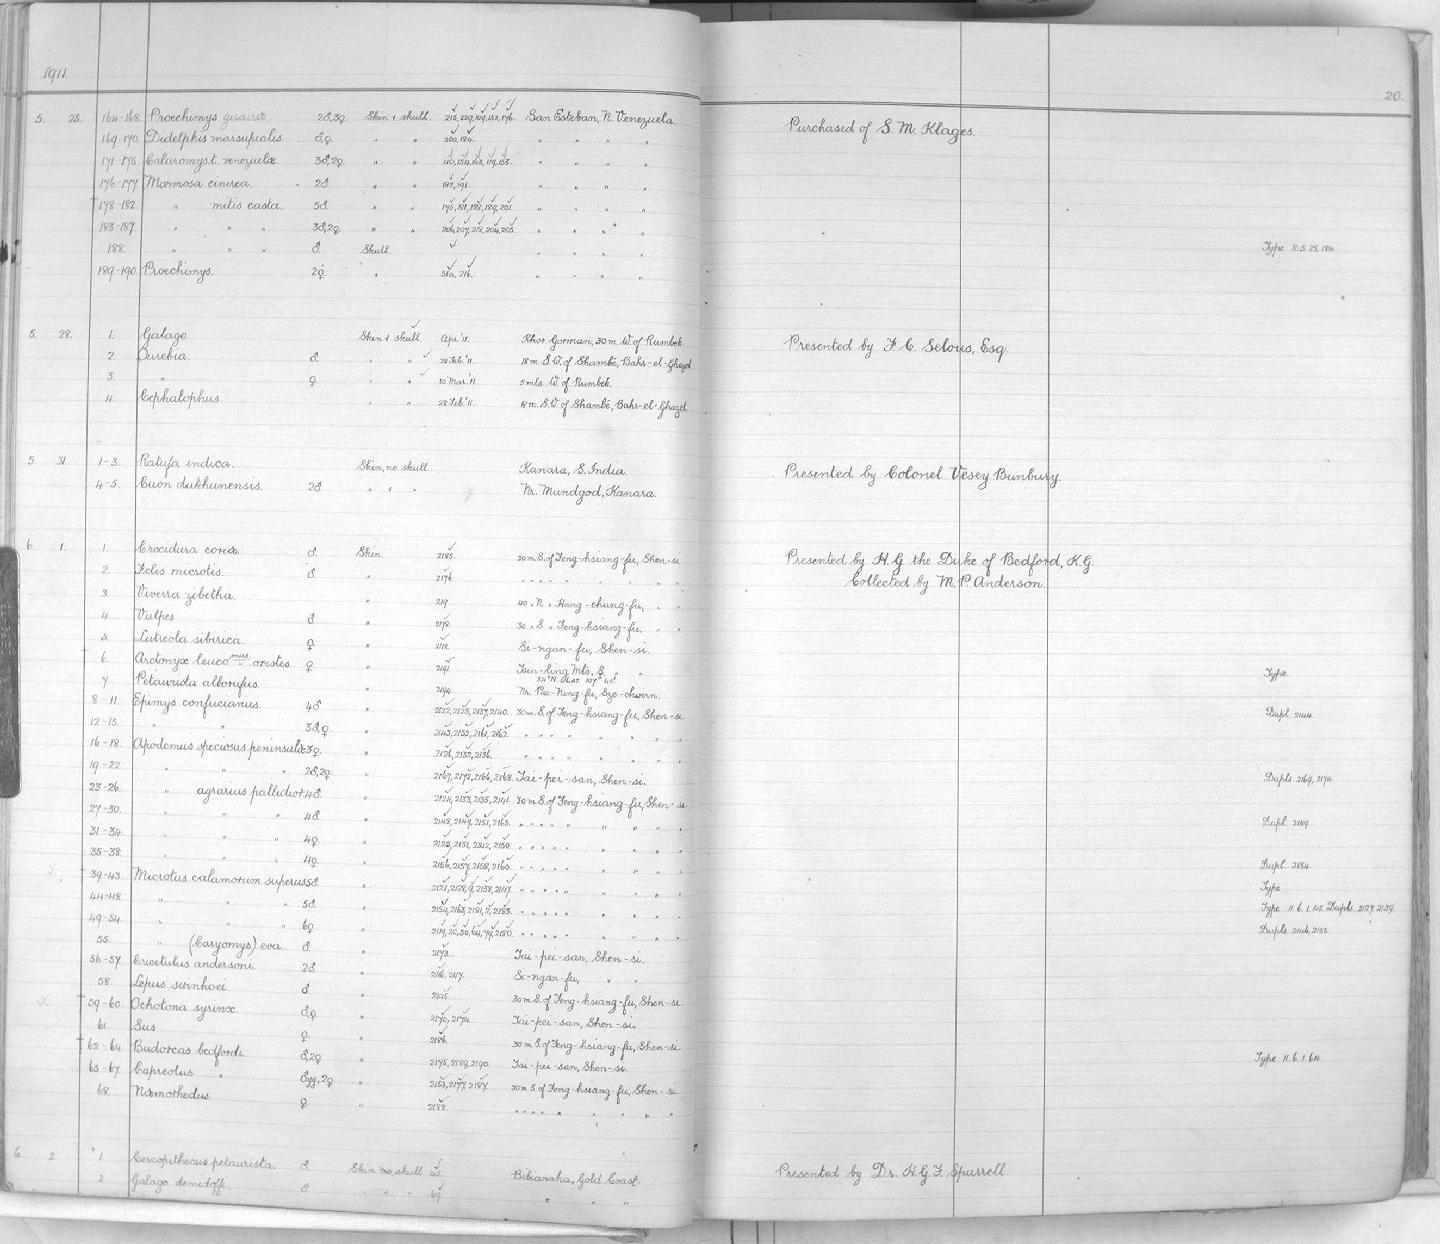 1911.
20.
5. 25. 164-168. Proechimys guairæ 2♂,3♀ Skin + skull. San Esteban, N. Venezuela. Purchased of S. M. Klages.
169-170. Didelphis marsupialis. ♂,♀ " " 200,184. " " " "
171-175. Caluromys t. venezuelæ. 3♂,2♀ " " " " " "
176-177. Marmosa cinerea. 2♂ " " 182,191. " " " "
†178-182. " mitis casta. 5♂ " " " " " "
183-187. " " " 3♂,2♀ " " " " " "
188. " " " ♂ Skull. " " " " Type 11.5.25.184.
189-190. Proechimys. 2♀ " " " " "
5. 28. 1. Galago. Skin + skull. Apr. '11. Khor Gorman, 30 m. W. of Rumbek. Presented by F. C. Selous, Esq.
2. Ourebia. ♂ " " 28 Feb. '11. 18 m. S.W. of Shambé, Bahr-el-Ghazel
3. " ♀ " " 10 Mar. '11. 5 mls. W. of Rumbek.
4. Cephalophus. " " 28 Feb. '11. 18 m. S.W. of Shambé, Bahr-el-Ghazel.
5. 31. 1-3. Ratufa indica. Skin, no skull Kanara, S. India. Presented by Colonel Vesey Bunbury.
4-5. Cuon dukhunensis. 2♂ " " " Nr. Mundgod, Kanara.
6. 1. 1. Crocidura coreæ. ♂ Skin 2185. 30 m. S. of Feng-hsiang-fu, Shen-si. Presented by H.G. the Duke of Bedford, K.G.
2. Felis microtis. ♂ " 2176. " " " " " " " Collected by M. P. Anderson.
3. Viverra zibetha. " 219. 40 " N. " Hang-chung-fu, " "
4. Vulpes ♂ " 2172. 30 " S. " Feng-hsiang-fu, " "
5. Lutreola sibirica. ♀ " 2118. Si-ngan-fu, Shen-si.
†6. Arctonyx leucolæmus orestes. ♀ " 2191. Tsin-ling Mts, S. " " Type.
34° N. Lat. 107° 45'.
7. Petaurista alborufus. " 2194. Nr. Pao-Ning-fu, Sze-chwan.
8-11. Epimys confucianus. 4♂ " 2122, 2123, 2137, 2140. 30 m. S. of Feng-hsiang-fu, Shen-si. Dupl. 2144.
12-15. " " 3♂,♀ " 2143, 2152, 2161, 2162. " " " " " " "
16-18. Apodemus speciosus peninsulæ. 3♀. " 2126, 2132, 2136. " " " " " " "
19-22. " " " 2♂,2♀. " 2167, 2172, 2166, 2168. Tai-pei-san, Shen-si. Dupls. 2169, 2171.
23-26. " agrarius pallidior. 4♂. " 2124, 2133, 2135, 2141. 30 m. S. of Feng-hsiang-fu, Shen-si.
27-30. " " " 4♂ " 2148, 2149, 2151, 2165. " " " " " " " Dupl. 2159.
31-34. " " " 4♀ " 2125, 2131, 2142, 2150. " " " " " " "
35-38. " " " 4♀ " 2156, 2157, 2158, 2160. " " " " " " " Dupl. 2134.
†39-43. Microtus calamorum superus. 5♂. " " " " " " " " Type
44-48. " " " 5♂ " " " " " " " " Type 11.6.1.45. Dupls. 2127, 2139.
49-54. " " " 6♀ " " " " " " " " Dupls. 2146, 2155.
55. " (Caryomys) eva. ♂ " 2173. Tai-pei-san, Shen-si.
56-57. Cricetulus andersoni. 2♂ " 2116, 2117. Si-ngan-fu, " "
58. Lepus swinhoei. ♂ " 2145. 30 m. S. of Feng-hsiang-fu, Shen-si.
†59-60. Ochotona syrinx. ♂,♀ " 2170, 2174. Tai-pei-san, Shen-si.
61. Sus ♀ " 2186. 30 m. S. of Feng-hsiang-fu, Shen-si.
†62-64. Budorcas bedfordi. ♂,2♀ " 2175, 2189, 2190. Tai-pei-san, Shen-si. Type 11.6.1.64.
65-67. Capreolus " ♂yg, 2♀ " 2153, 2177, 2187. 30 m. S. of Feng-hsiang-fu, Shen-si.
68. Næmorhedus. ♀ " 2188. " " " " " " "
6. 2. 1. Cercopithecus petaurista. ♂ Skin no skull Bibianaha, Gold Coast. Presented by Dr. H. G. F. Spurrell
2. Galago demidoffi. ♂ " " " 69. " " "